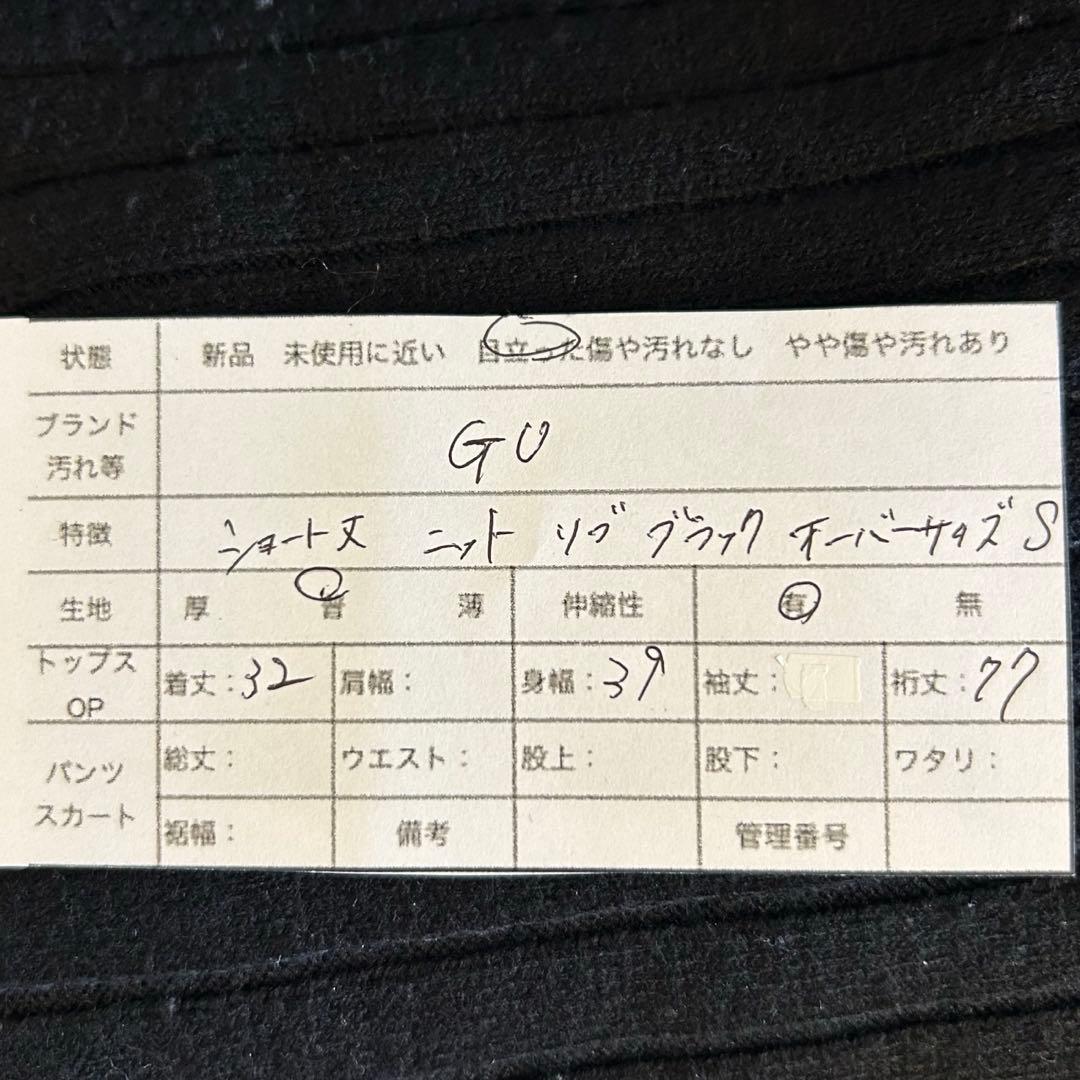 状態 新品 未使用に近い 目立った傷や汚れなし やや傷や汚れあり
ブランド
汚れ等
GU
特徴 ショート丈 ニット リブ ブラック オーバーサイズ S
生地 厚 普 薄 伸縮性 有 無
トップス
OP
着丈:32 肩幅: 身幅:39 袖丈: 裄丈:77
パンツ
スカート
総丈: ウエスト: 股上: 股下: ワタリ:
裾幅: 備考 管理番号